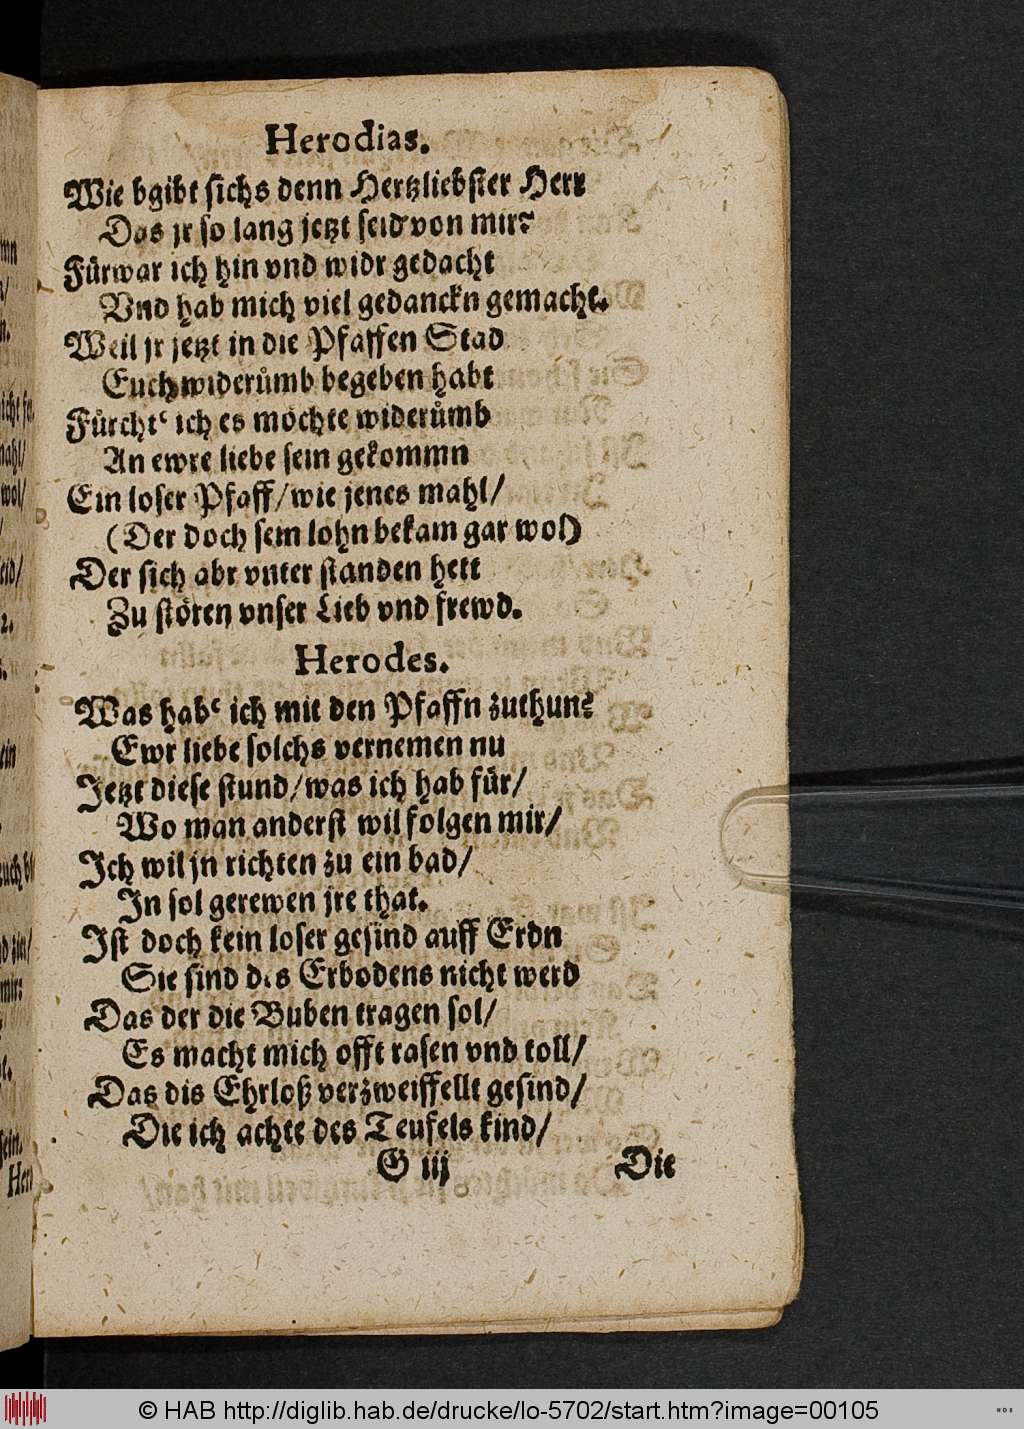 Herodias.
Wie bgibt sichs denn Hertzliebster Herr
Das jr so lang jetzt seid von mir?
Fürwar ich hin vnd widr gedacht
Vnd hab mich viel gedanckn gemacht.
Weil jr jetzt in die Pfaffen Stad
Euch widerůmb begeben habt
Fürcht‘ ich es möchte widerůmb
An ewre liebe sein gekommn
Ein loser Pfaff/wie jenes mahl/
(Der doch sein lohn bekam gar wol)
Der sich abr vnter standen hett
Zu stören vnser Lieb vnd frewd.
Herodes.
Was hab‘ ich mit den Pfaffn zuthun?
Ewr liebe solchs vernemen nu
Jetzt diese stund/was ich hab für/
Wo man anderst wil folgen mir/
Ich wil jn richten zu ein bad/
In sol gerewen jre that.
Ist doch kein loser gesind auff Erdn
Sie sind des Erbodens nicht werd
Das der die Buben tragen sol/
Es macht mich offt rasen vnd toll/
Das dis Ehrloß verzweiffellt gesind/
Die ich achte des Teufels kind/
G iij Die
© HAB http://diglib.hab.de/drucke/lo-5702/start.htm?image=00105